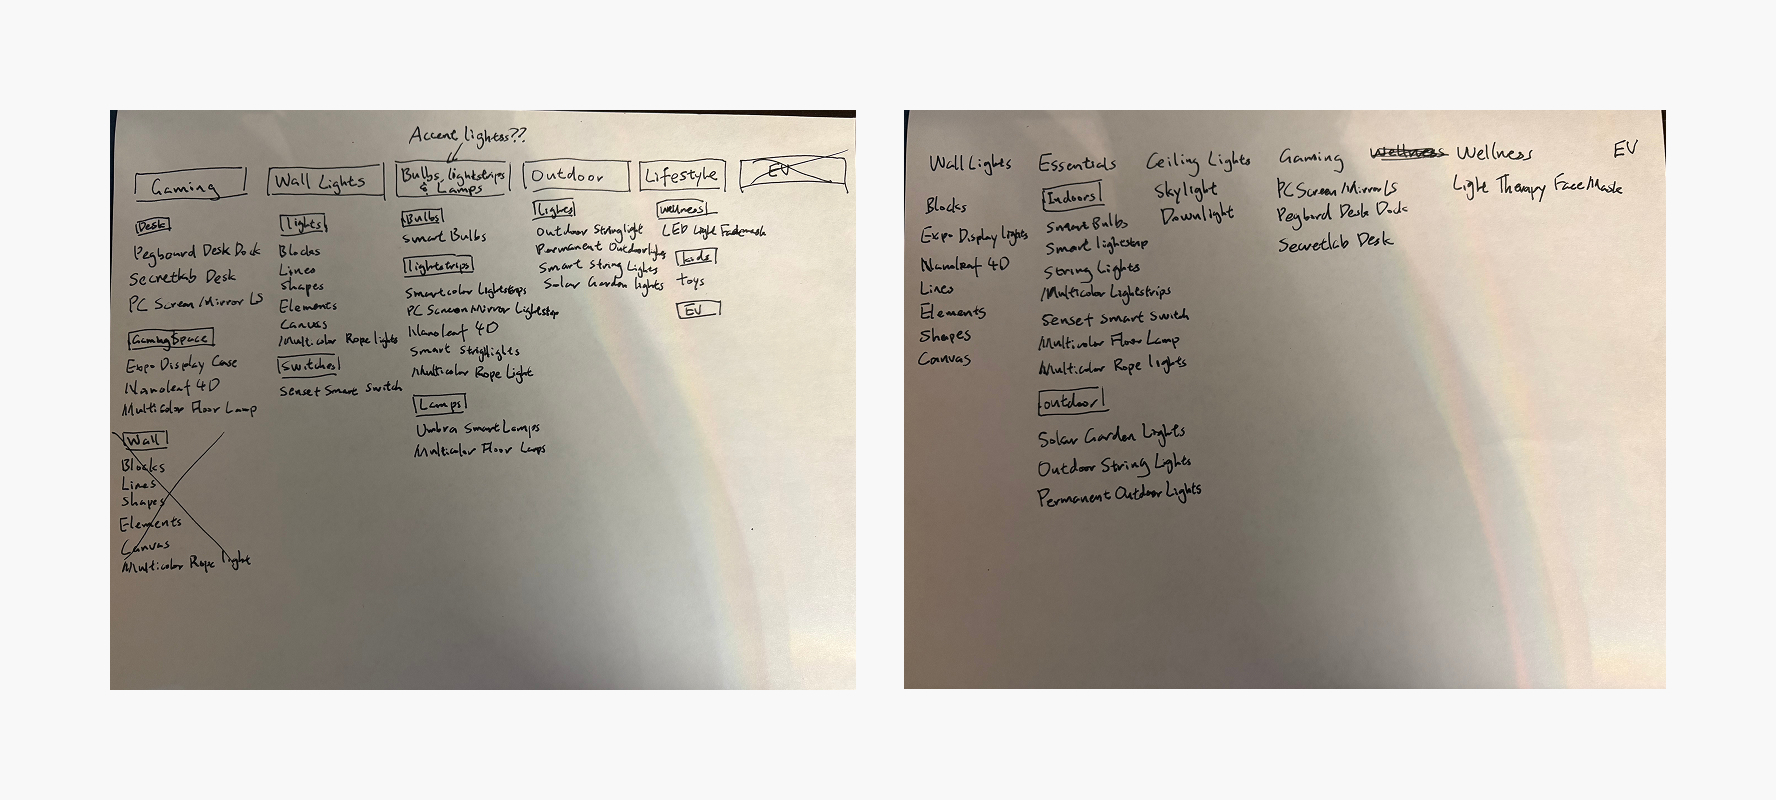 Accent lights??
Gaming
Desk
Pegboard Desk Dock
Secretlab Desk
PC Screen/Mirror LS
Gaming Space
Expo Display Case
Nanoleaf 4D
Multicolor Floor Lamp
Wall
Blocks
Lines
Shapes
Elements
Canvas
Multicolor Rope light
Wall Lights
lights
Blocks
Lines
Shapes
Elements
Canvas
Multicolor Rope lights
Switches
Senset Smart Switch
Bulbs, lightstrips
& Lamps
Bulbs
Smart Bulbs
lightstrips
Smartcolor Lightstrips
PC Screen Mirror Lightstrip
Nanoleaf 4D
Smart Strightlights
Multicolor Rope Light
Lamps
Umbra Smart Lamps
Multicolor Floor Lamps
Outdoor
lights
Outdoor Stringlight
Permanent Outdoorlights
Smart String Lights
Solar Garden lights
Lifestyle
wellness
LED Light Facemask
kids
toys
EV
EV
Wall Lights
Blocks
Expo Display lights
Nanoleaf 4D
Lines
Elements
Shapes
Canvas
Essentials
Indoors
Smart Bulbs
Smart lightstrip
String Lights
Multicolor Lightstrips
Senset Smart Switch
Multicolor Floor Lamp
Multicolor Rope lights
outdoor
Solar Garden Lights
Outdoor String Lights
Permanent Outdoor Lights
Ceiling Lights
Skylight
Downlight
Gaming
PC Screen/Mirror LS
Pegbord Desk Dock
Secretlab Desk
Wellness
Wellness
Light Therapy Face Mask
EV